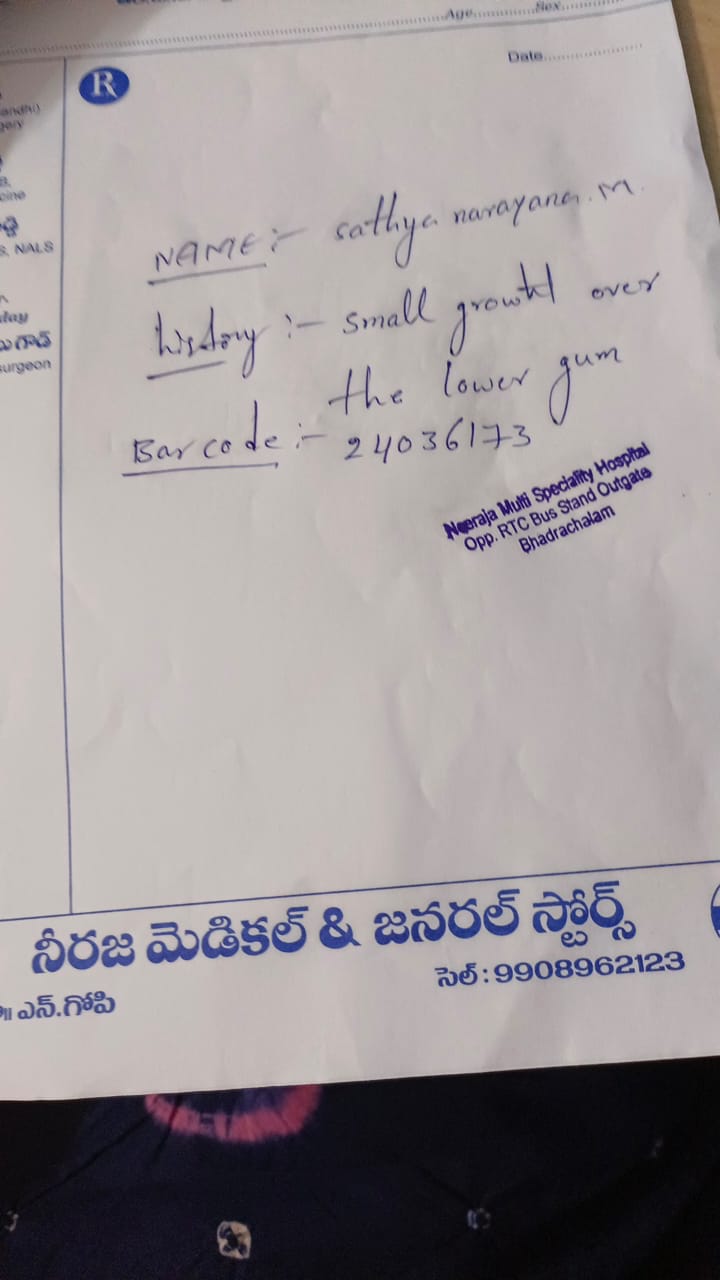 Age............Sex............
Date........................
R
andhi)
gery
B.
cine
S. NALS
day
surgeon
NAME:- sathya narayana.M.
history :- small growth over
the lower gum
Barcode :- 24036173
Neeraja Multi Speciality Hospital
Opp. RTC Bus Stand Outgate
Bhadrachalam
నీరజ మెడికల్ & జనరల్ స్టోర్స్
సెల్ : 9908962123
ఎన్.గోపి